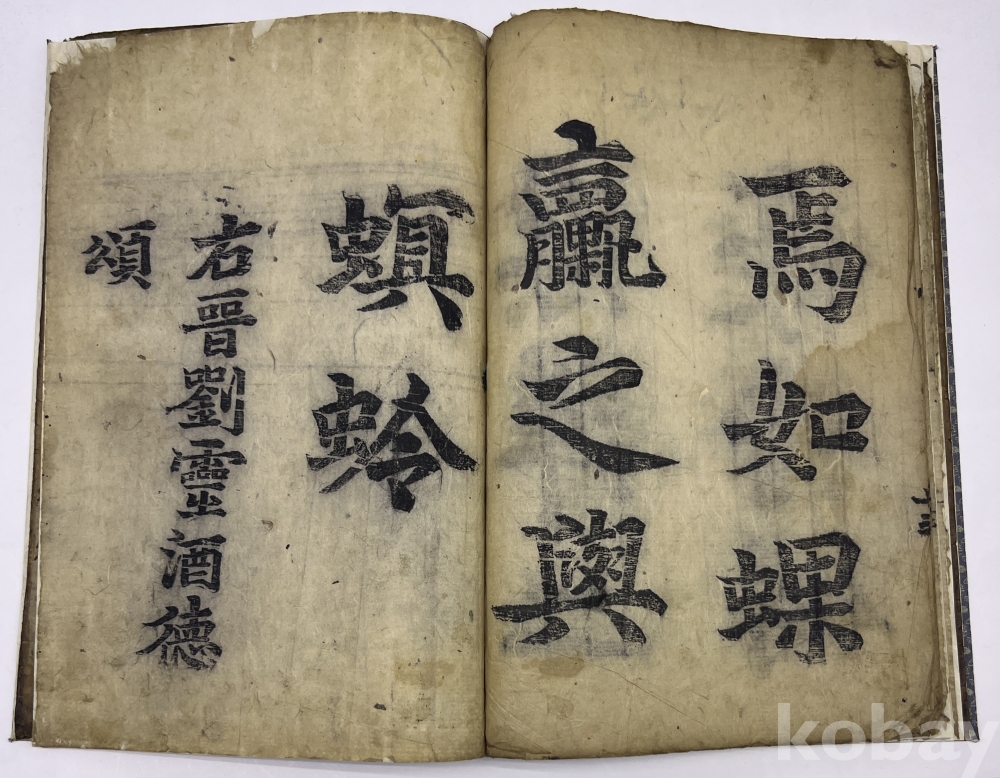 焉如蜾
蠃之與
螟蛉
右晉劉靈酒德
頌
kobay